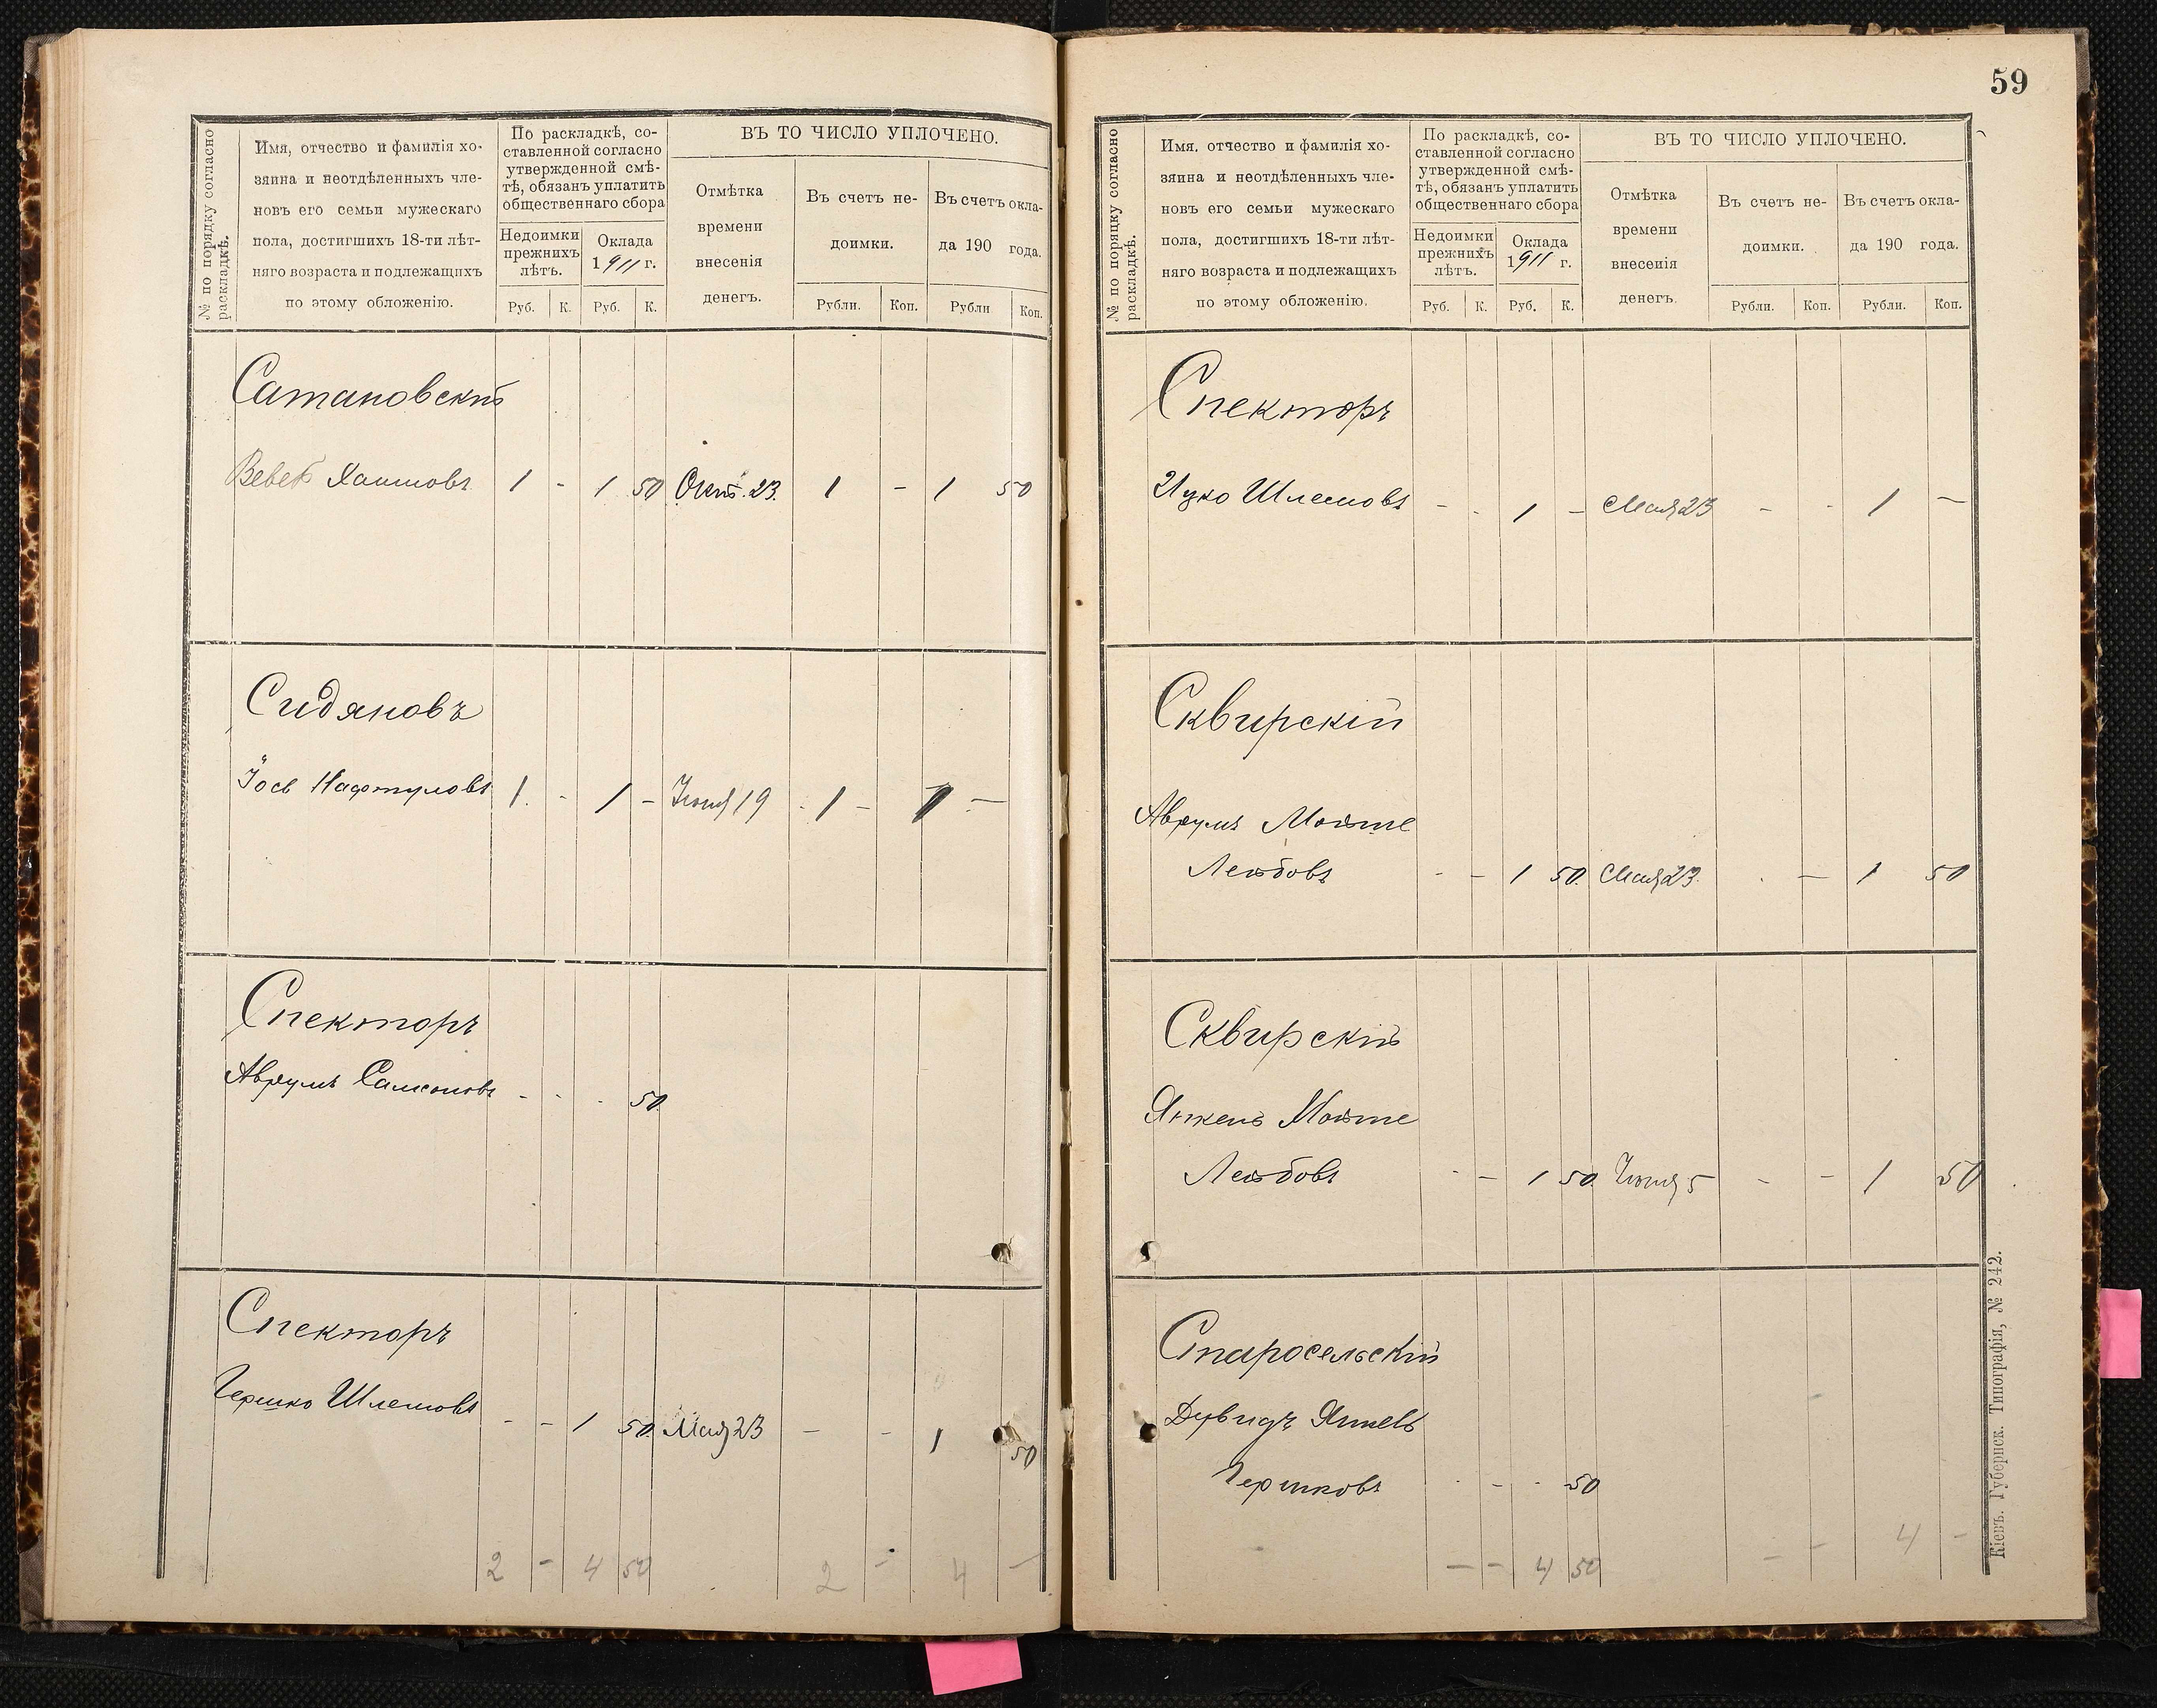 59
№ по порядку согласно раскладкѣ.
Имя, отчество и фамилія хо-
зяина и неотдѣленныхъ чле-
новъ его семьи мужескаго
пола, достигшихъ 18-ти лѣт-
няго возраста и подлежащихъ
по этому обложенію.
По раскладкѣ, со-
ставленной согласно
утвержденной смѣ-
тѣ, обязанъ уплатить
общественнаго сбора
Недоимки
прежнихъ
лѣтъ.
Оклада
1911 г.
Руб. К. Руб. К.
ВЪ ТО ЧИСЛО УПЛОЧЕНО.
Отмѣтка
времени
внесенія
денегъ.
Въ счетъ не-
доимки.
Въ счетъ окла-
да 190 года.
Рубли. Коп. Рубли Коп.
Сатановскій
Вевель Хаимовъ 1 - 1 50 Окт. 23. 1 - 1 50
Сидяновъ
Іось Нафтуловъ 1. - 1 - Іюня 19 - 1 - 1 -
Спекторъ
Аврумъ Самсоновъ - - - 50
Спекторъ
Гершко Шлемовъ - - 1 50. Мая 23 - - 1 50
2 - 4 50 2 - 4 -
№ по порядку согласно раскладкѣ.
Имя, отчество и фамилія хо-
зяина и неотдѣленныхъ чле-
новъ его семьи мужескаго
пола, достигшихъ 18-ти лѣт-
няго возраста и подлежащихъ
по этому обложенію.
По раскладкѣ, со-
ставленной согласно
утвержденной смѣ-
тѣ, обязанъ уплатить
общественнаго сбора
Недоимки
прежнихъ
лѣтъ.
Оклада
1911 г.
Руб. К. Руб. К.
ВЪ ТО ЧИСЛО УПЛОЧЕНО.
Отмѣтка
времени
внесенія
денегъ.
Въ счетъ не-
доимки.
Въ счетъ окла-
да 190 года.
Рубли. Коп. Рубли. Коп.
Спекторъ
Ицко Шлемовъ - - 1 - Мая 23 - - 1 -
Сквирскій
Аврумъ Мойше
Лейбовъ - - 1 50. Мая 23. - - 1 50
Сквирскій
Янкель Мойше
Лейбовъ - - 1 50. Іюня 5 - - 1 50
Старосельскій
Дувидъ Янкель
Гершковъ - - - 50
- - 4 50 - - 4 -
Кіевъ. Губернск. Типографія, № 242.